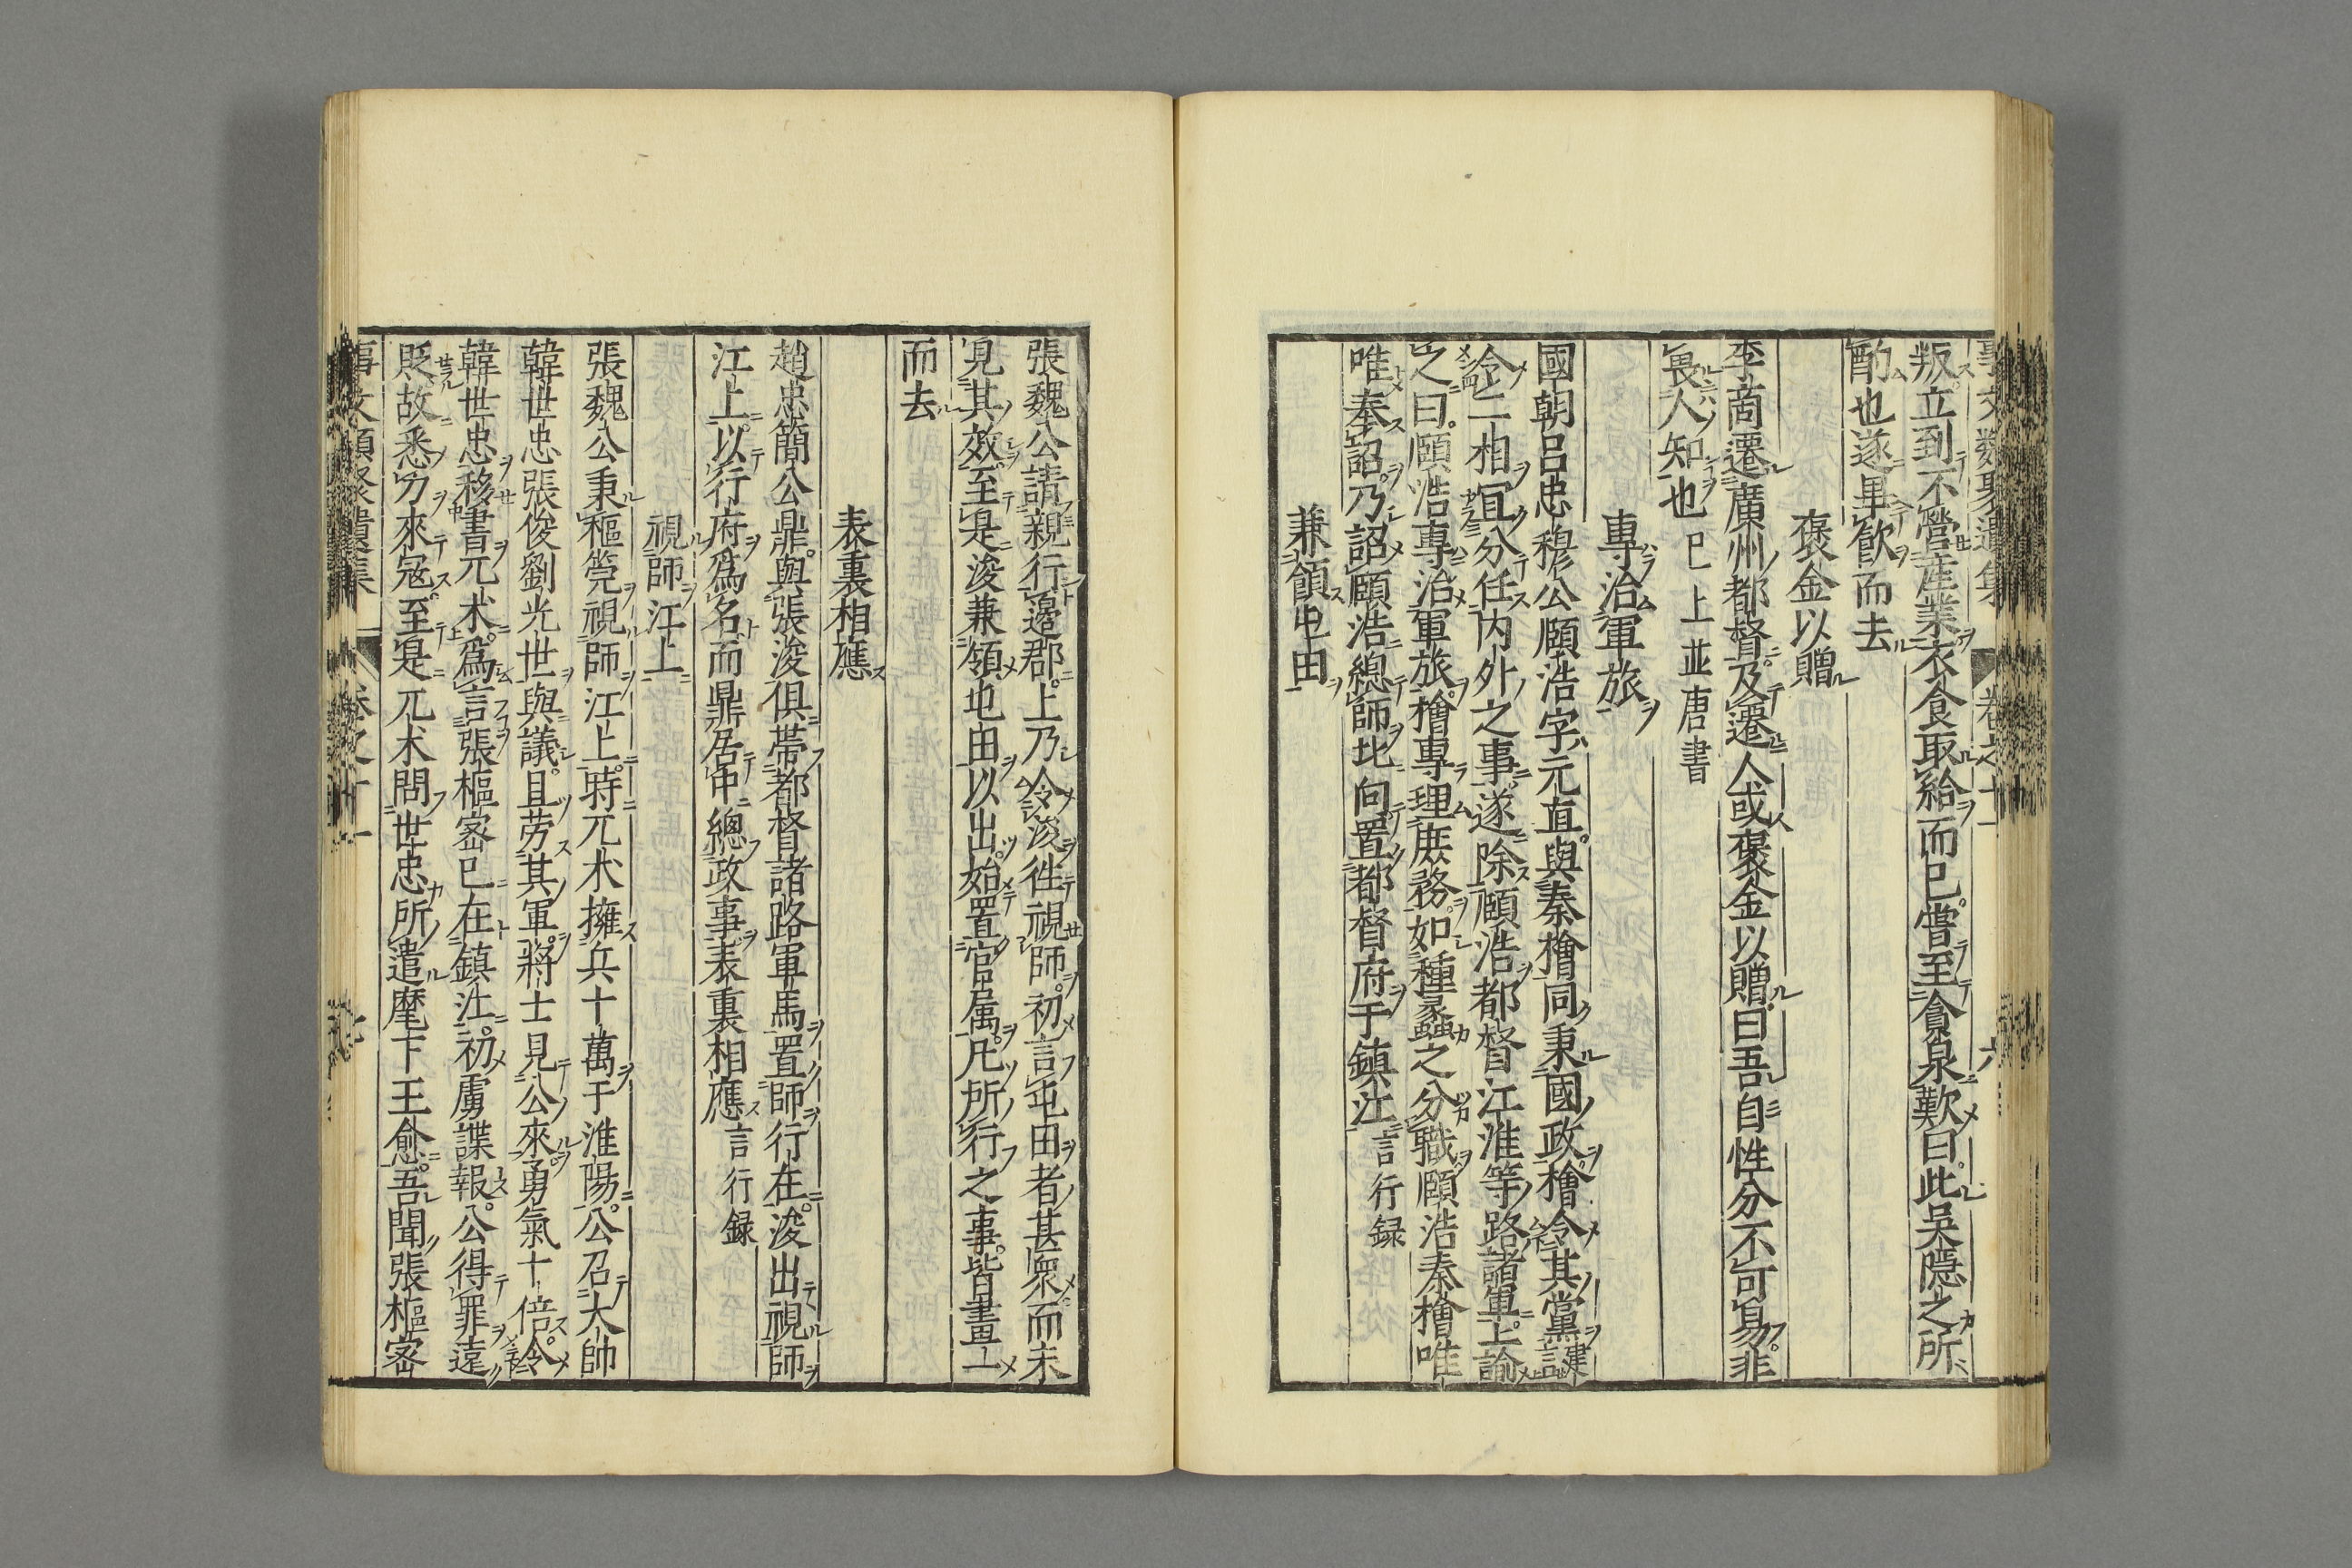 事文類聚遺集　卷之十一　六
叛立到不營産業衣食取給而已嘗至貪泉歎曰此吳隱之所
酌也遂畢飮而去
褒金以贈
李商遷廣州都督及遷人或褒金以贈曰吾自性分不可易非
畏人知也 已上並唐書
專治軍旅
國朝吕忠穆公頤浩字元直與秦檜同秉國政檜令其黨建言
令二相宜分任内外之事遂除頤浩都督江淮等路諸軍上諭
之曰頤浩專治軍旅檜專理庶務如種蠡之分職頤浩秦檜唯
唯奉詔乃詔頤浩總師北向置都督府于鎮江 言行録
兼領屯田
張魏公請親行邊郡上乃令浚徃視師初言屯田者甚衆而未
見其效至是浚兼領屯田以出始置官属凡所行之事皆畫一
而去
表裏相應
趙忠簡公鼎與張浚俱帶都督諸路軍馬置師行在浚出視師
江上以行府爲名而鼎居中總政事表裏相應 言行録
視師江上
張魏公秉樞筦視師江上時兀术擁兵十萬于淮陽公召大帥
韓世忠張俊劉光世與議且劳其軍將士見公來勇氣十倍令
韓世忠移書兀术爲言張樞密已在鎮江初虜諜報公得罪遠
貶故悉力來冦至是兀术問世忠所遣麾下王愈吾聞張樞密
事文類聚遺集　卷之十一